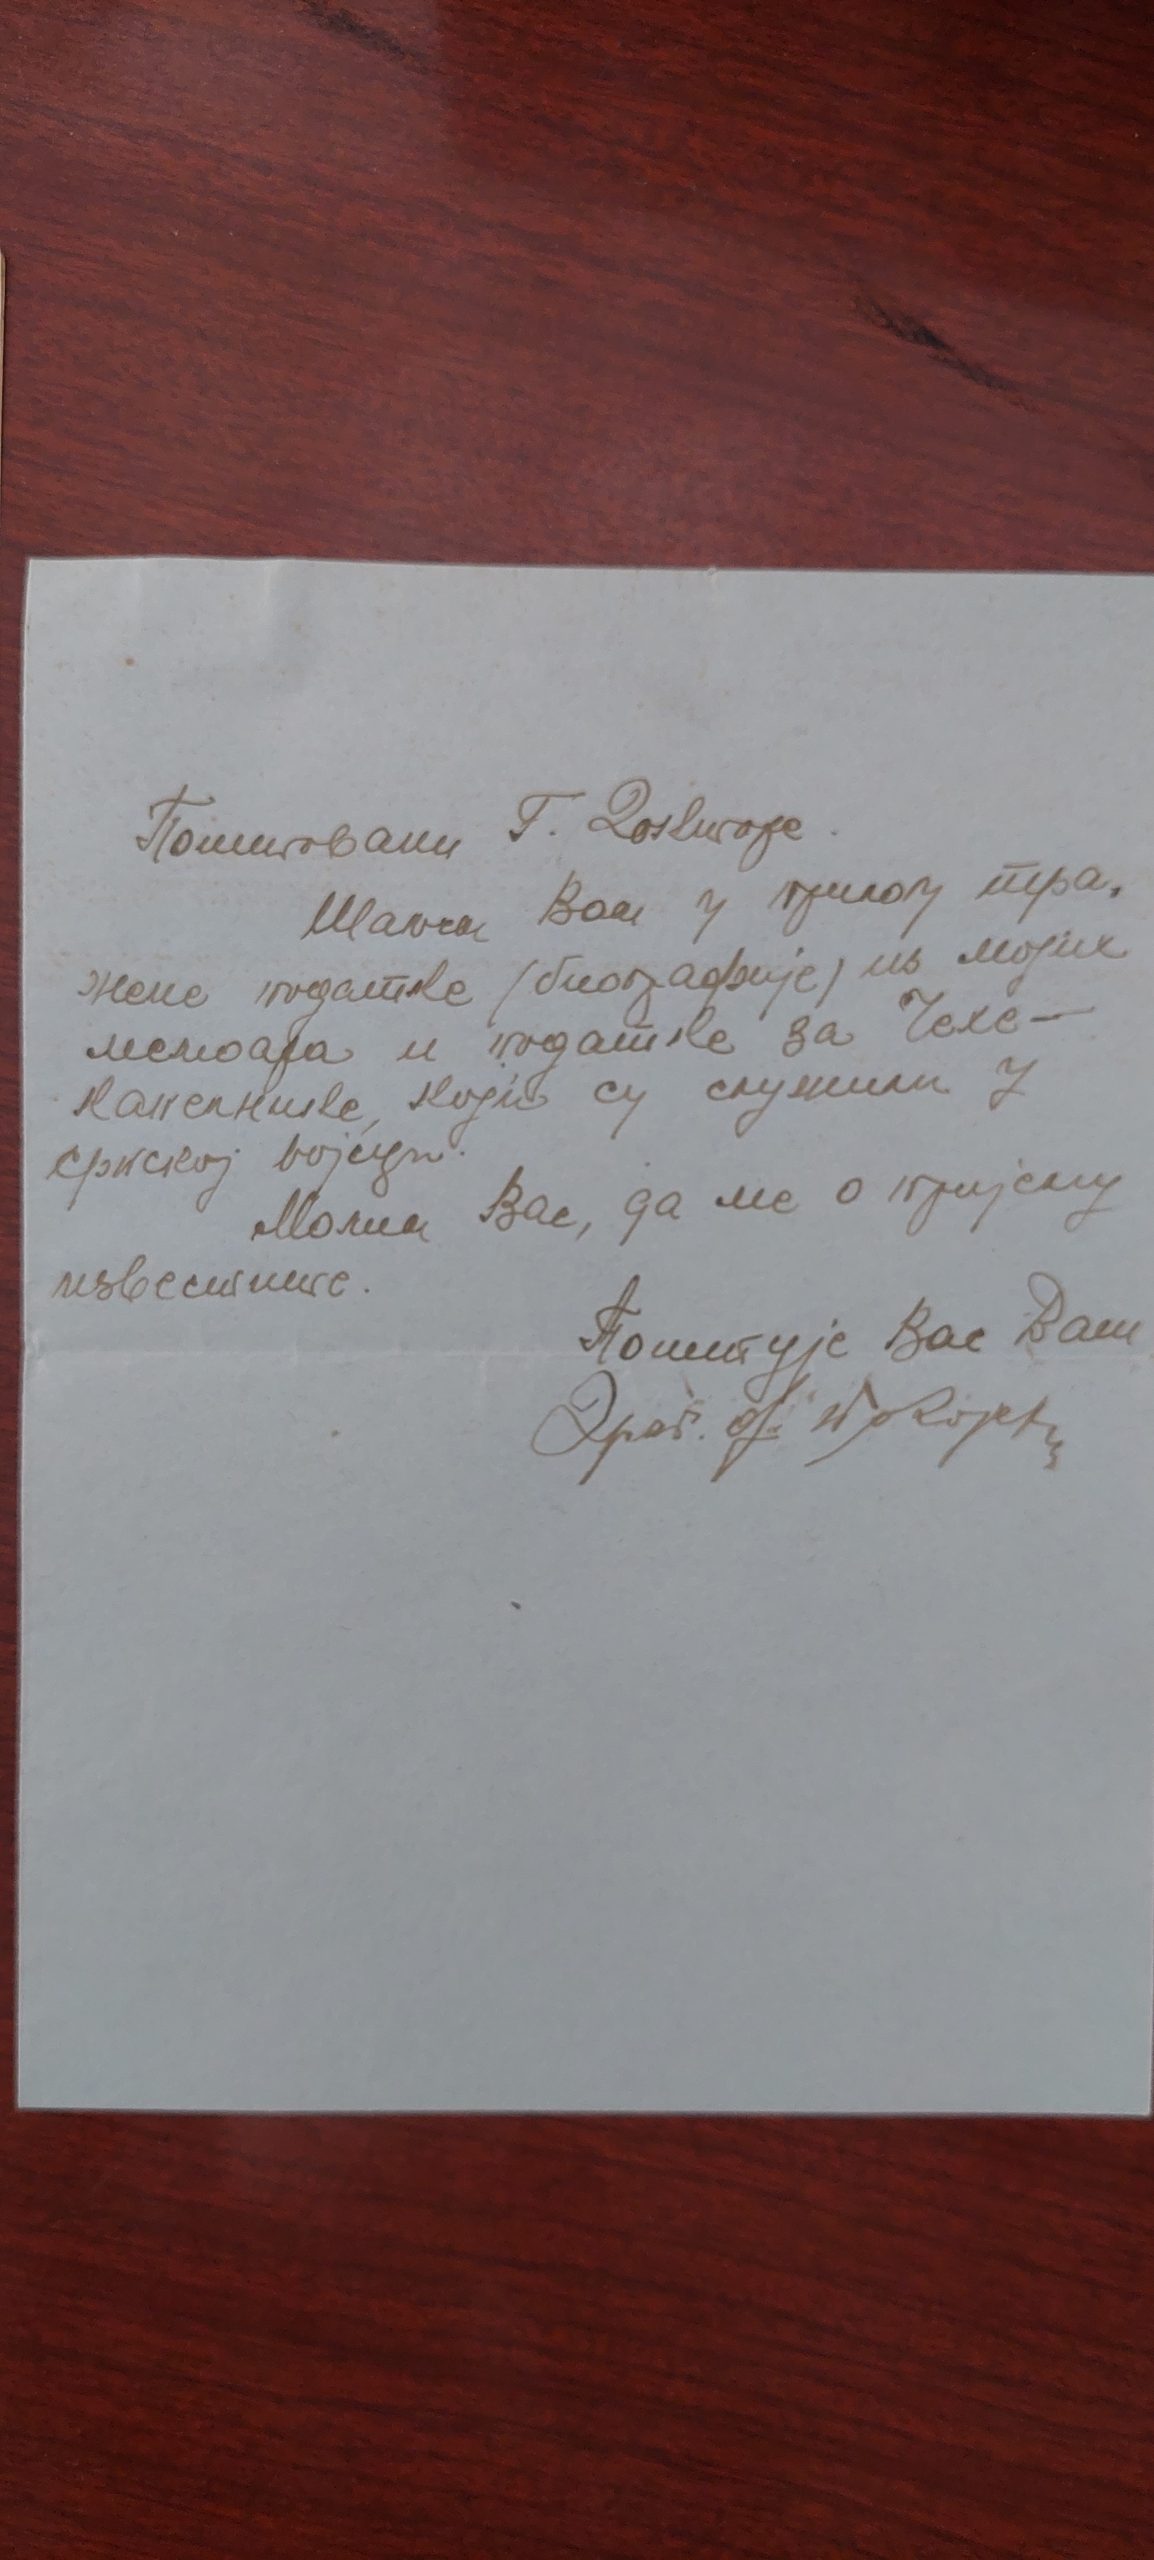 Поштовани Г. Докторе.
Шаљем Вам у прилогу тра-
жене податке (биографије) из мојих
мемоара и податке за Чехе-
капелнике, који су служили у
српској војсци.
Молим Вас, да ме о пријему
известите.
Поштује Вас Ваш
Драг.